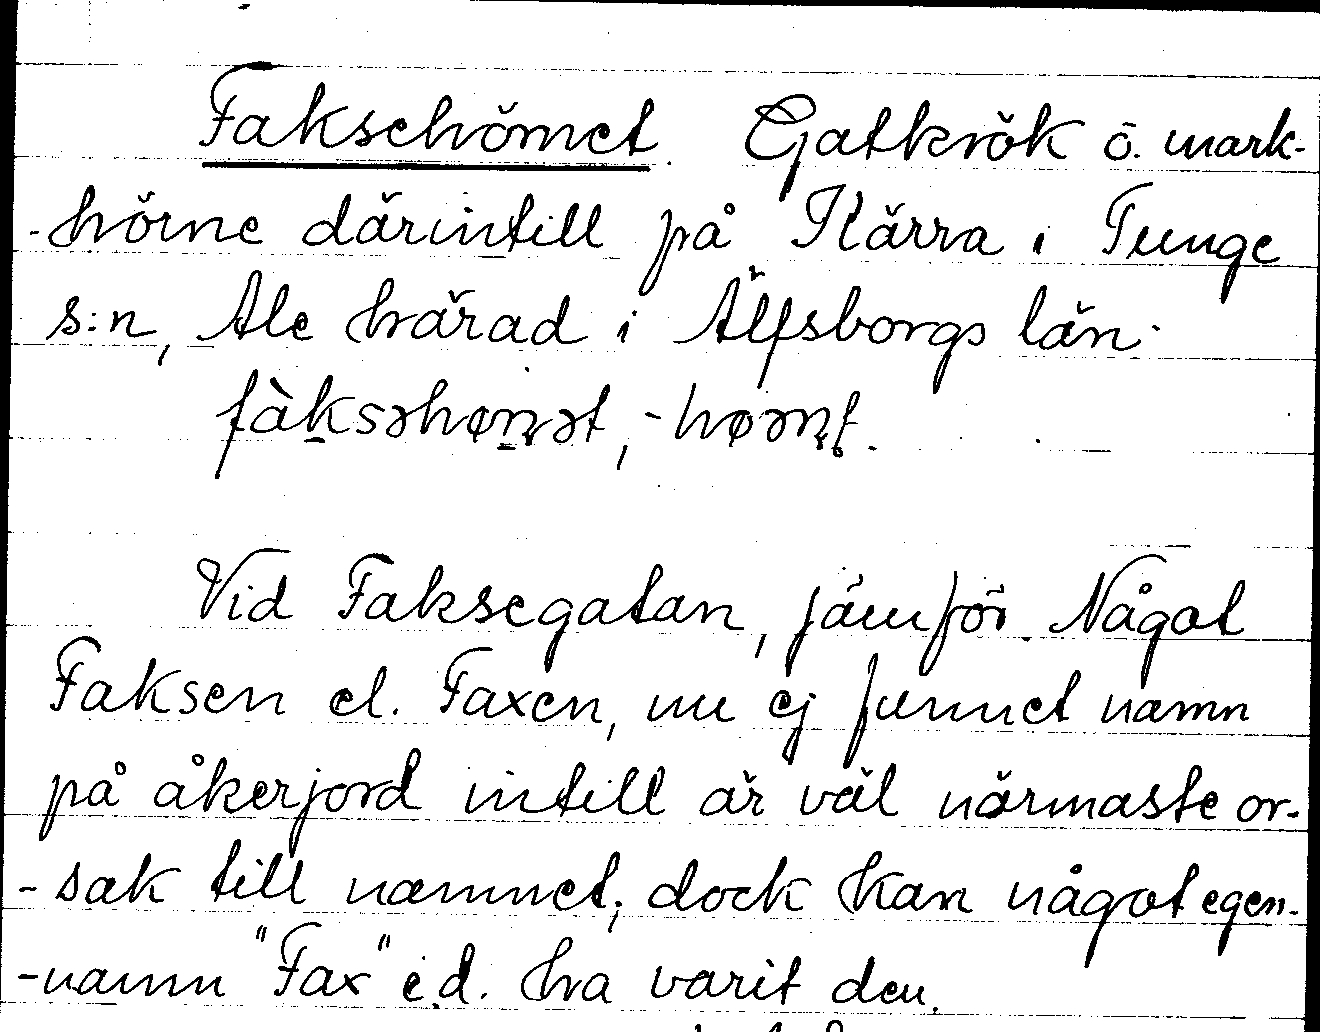 Faksehörnet. Gatkrök ö. mark-
-hörne därintill på Kärra i Tunge
s:n, Ale härad i Älfsborgs län.
Vid Faksegatan, jämför. Något
Faksen el. Faxen, nu ej funnet namn
på åkerjord intill är väl närmaste or-
-sak till namnet; dock kan något egen-
-namn "Fax" e.d. ha varit den